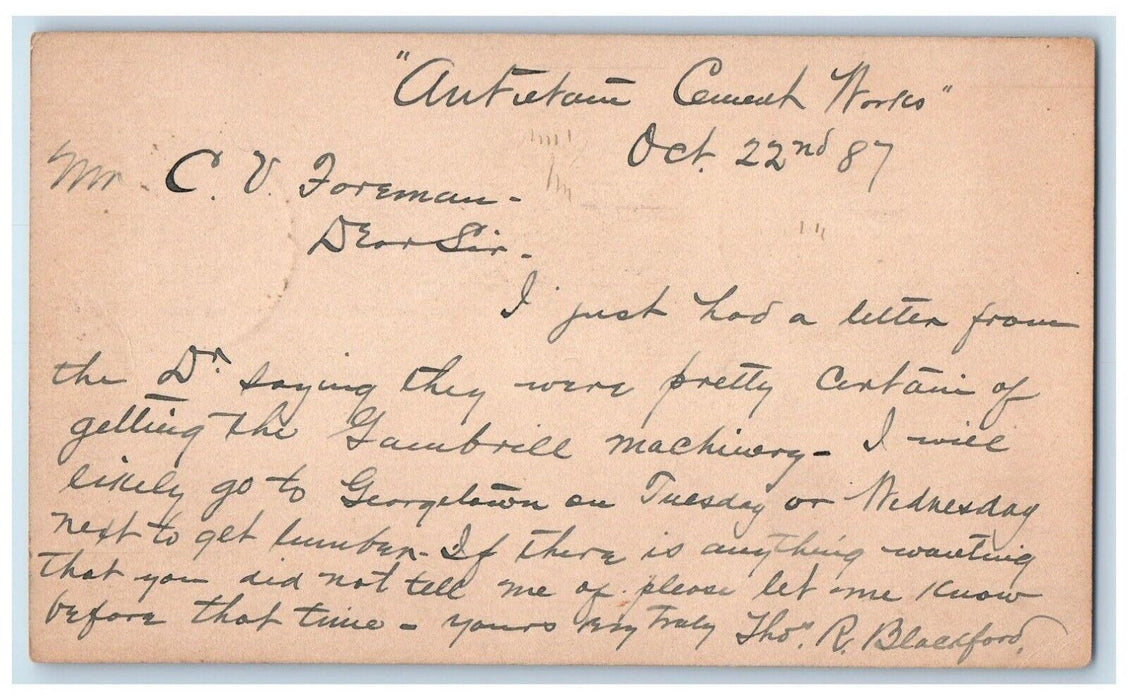 "Antietam Cement Works"
Oct. 22nd 87
Mr. C. V. Foreman -
Dear Sir -
I just had a letter from
the Dr. saying they were pretty certain of
getting the Gambrill machinery - I will
likely go to Georgetown on Tuesday or Wednesday
next to get lumber - If there is anything wanting
that you did not tell me of please let me know
before that time - yours very truly Thos. R. Blackford.